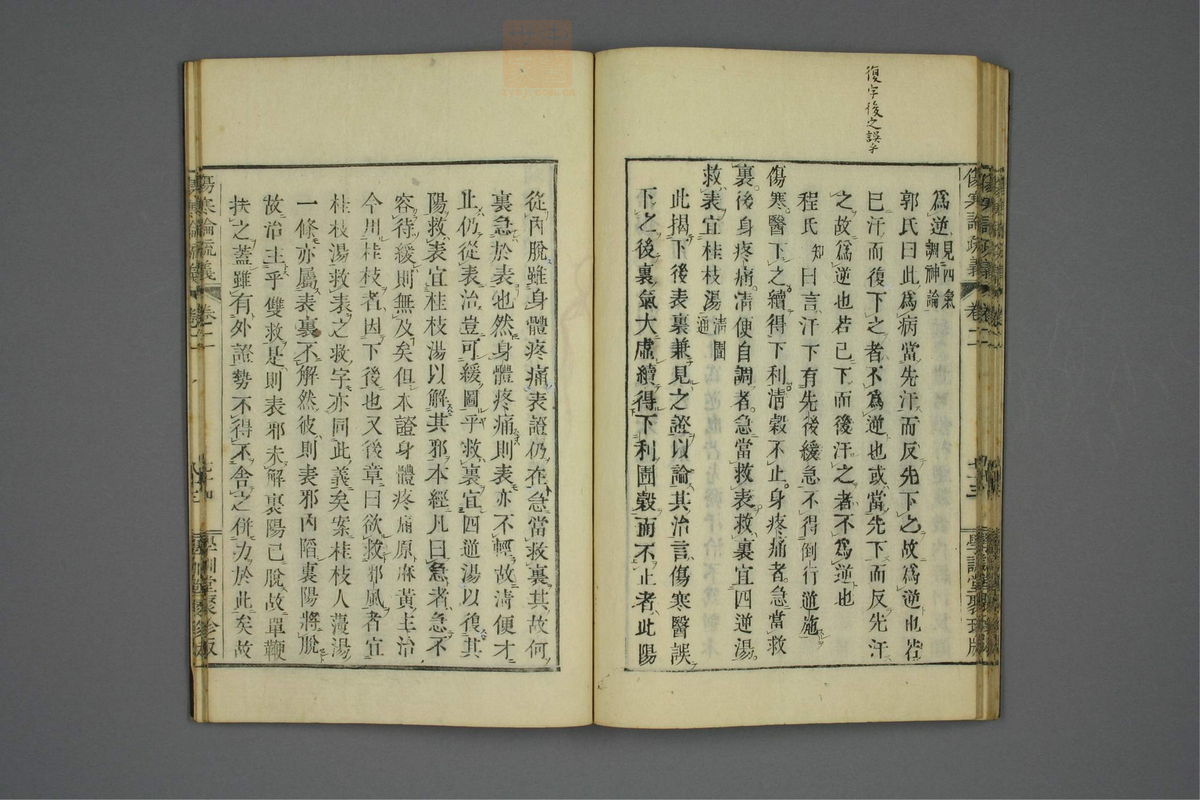 復字後之誤乎
爲逆見四氣調神論
郭氏曰此爲病當先汗而反先下之故爲逆也若
已汗而後下之者不爲逆也或當先下而反先汗
之故爲逆也若已下而後汗之者不爲逆也
程氏知曰言汗下有先後緩急不得倒行逆施
傷寒醫下之續得下利淸穀不止身疼痛者急當救
裏後身疼痛淸便自調者急當救表救裏宜四逆湯
救表宜桂枝湯淸圊通
此揭下後表裏兼見之證以論其治言傷寒醫誤
下之後裏氣大虛續得下利圊穀而不止者此陽
傷寒論疏義
卷二
學訓堂聚珍版
從內脫雖身體疼痛表證仍在急當救裏其故何
裏急於表也然身體疼痛則表亦不輕故淸便才
止仍從表治豈可緩圖乎救裏宜四逆湯以復其
陽救表宜桂枝湯以解其邪本經凡曰急者急不
容待緩則無及矣但本證身體疼痛原麻黃主治
今用桂枝者因下後也又後章曰欲救邪風者宜
桂枝湯救表之救字亦同此義矣案桂枝人薓湯
一條亦屬表裏不解然彼則表邪內陷裏陽將脫
故治主乎雙救是則表邪未解裏陽已脫故單鞭
扶之蓋雖有外證勢不得不舍之併力於此矣故
傷寒論疏義
卷二
學訓堂聚珍版